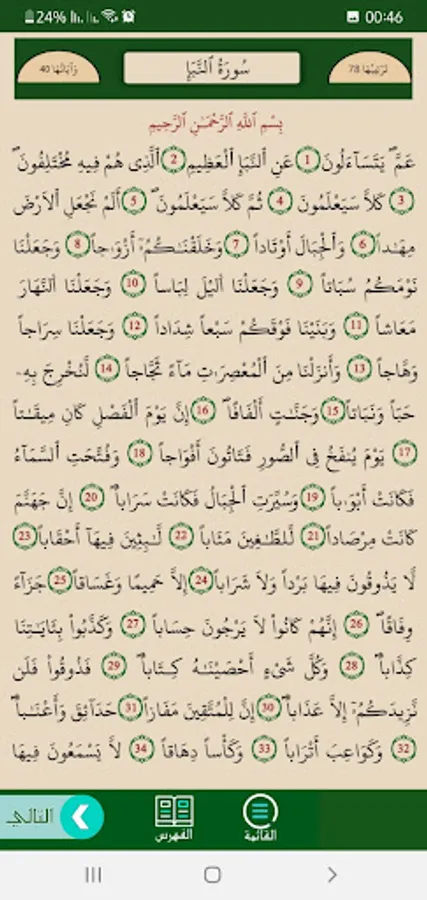 24%
00:46
وَآيَاتُهَا 40
سُورَةُ اُلنَّبَإِ
تَرْتِيبُهَا 78
بِسْمِ اِ۬للَّهِ اِ۬لرَّحْمَٰنِ اِ۬لرَّحِيمِ
عَمَّ يَتَسَآءَلُونَ 1 عَنِ اِ۬لنَّبَإِ اِ۬لْعَظِيمِ 2 اِ۬لَّذِى هُمْ فِيهِ مُخْتَلِفُونَ
3 كَلَّا سَيَعْلَمُونَ 4 ثُمَّ كَلَّا سَيَعْلَمُونَ 5 أَلَمْ نَجْعَلِ اِ۬لَارْضَ
مِهَٰداً 6 وَالْجِبَالَ أَوْتَاداً 7 وَخَلَقْنَٰكُمُۥٓ أَزْوَٰجاً 8 وَجَعَلْنَا
نَوْمَكُمْ سُبَاتاً 9 وَجَعَلْنَا اَ۬ليْلَ لِبَاساً 10 وَجَعَلْنَا اَ۬لنَّهَارَ
مَعَاشاً 11 وَبَنَيْنَا فَوْقَكُمْ سَبْعاً شِدَاداً 12 وَجَعَلْنَا سِرَاجاً
وَهَّاجاً 13 وَأَنزَلْنَا مِنَ اَ۬لْمُعْصِرَٰتِ مَآءً ثَجَّاجاً 14 لِّنُخْرِجَ بِهِۦ
حَبّاً وَنَبَاتاً 15 وَجَنَّٰتٍ أَلْفَافاً 16 إِنَّ يَوْمَ اَ۬لْفَصْلِ كَانَ مِيقَٰتاً
17 يَوْمَ يُنفَخُ فِى اِ۬لصُّورِ فَتَاتُونَ أَفْوَاجاً 18 وَفُتِّحَتِ اِ۬لسَّمَآءُ
فَكَانَتْ أَبْوَٰباً 19 وَسُيِّرَتِ اِ۬لْجِبَالُ فَكَانَتْ سَرَاباً 20 إِنَّ جَهَنَّمَ
كَانَتْ مِرْصَاداً 21 لِّلطَّٰغِينَ مَـَٔاباً 22 لَّٰبِثِينَ فِيهَآ أَحْقَاباً 23
لَّا يَذُوقُونَ فِيهَا بَرْداً وَلَا شَرَاباً 24 إِلَّا حَمِيمًا وَغَسَاقاً 25 جَزَآءً
وِفَاقًا 26 إِنَّهُمْ كَانُواْ لَا يَرْجُونَ حِسَاباً 27 وَكَذَّبُواْ بِـَٔايَٰتِنَا
كِذَّاباً 28 وَكُلَّ شَىْءٍ أَحْصَيْنَٰهُ كِتَٰباً 29 فَذُوقُواْ فَلَن
نَّزِيدَكُمُۥٓ إِلَّا عَذَاباً 30 إِنَّ لِلْمُتَّقِينَ مَفَازاً 31 حَدَآئِقَ وَأَعْنَٰباً
32 وَكَوَاعِبَ أَتْرَاباً 33 وَكَأْساً دِهَاقاً 34 لَّا يَسْمَعُونَ فِيهَا
التالي
الفهرس
القائمة